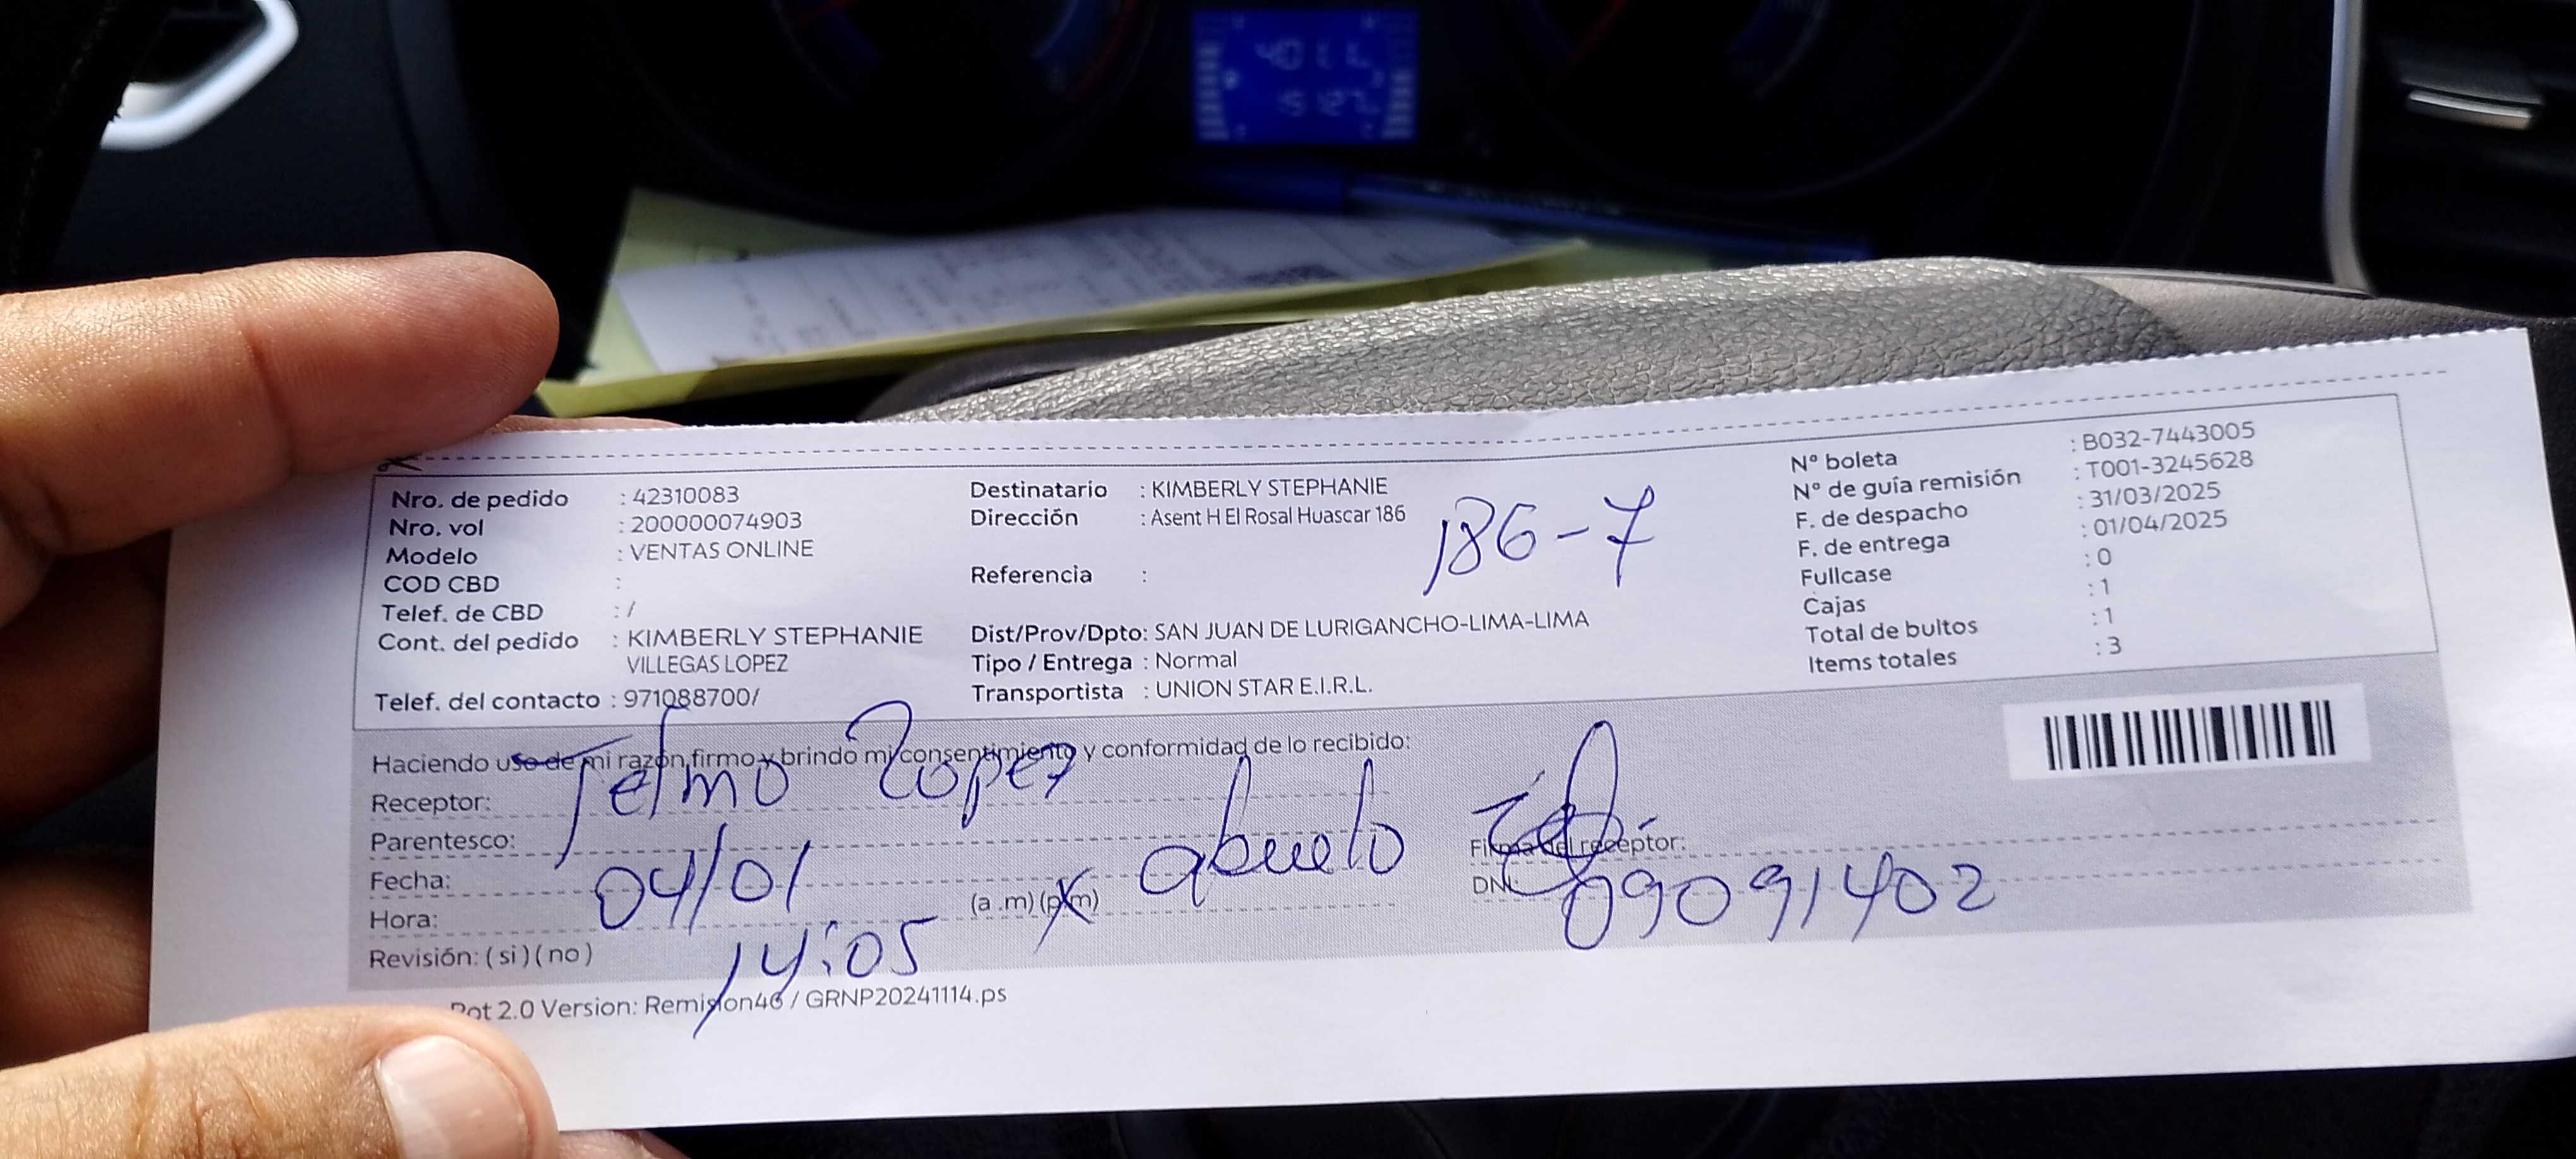 Nro. de pedido : 42310083
Nro. vol : 200000074903
Modelo : VENTAS ONLINE
COD CBD :
Telef. de CBD : /
Cont. del pedido : KIMBERLY STEPHANIE
VILLEGAS LOPEZ
Telef. del contacto : 971088700/
Destinatario : KIMBERLY STEPHANIE
Dirección : Asent H El Rosal Huascar 186
186-7
Referencia :
Dist/Prov/Dpto: SAN JUAN DE LURIGANCHO-LIMA-LIMA
Tipo / Entrega : Normal
Transportista : UNION STAR E.I.R.L.
N° boleta : B032-7443005
N° de guía remisión : T001-3245628
F. de despacho : 31/03/2025
F. de entrega : 01/04/2025
Fullcase : 0
Cajas : 1
Total de bultos : 1
Items totales : 3
Haciendo uso de mi razón, firmo y brindo mi consentimiento y conformidad de lo recibido:
Receptor: Telmo Lopez
Parentesco: abuelo
Fecha: 04/01
Hora: 14:05 (a .m) (p.m)
Revisión: ( si ) ( no )
Firma del receptor:
DNI: 09091402
2.0 Version: Remision46 / GRNP20241114.ps